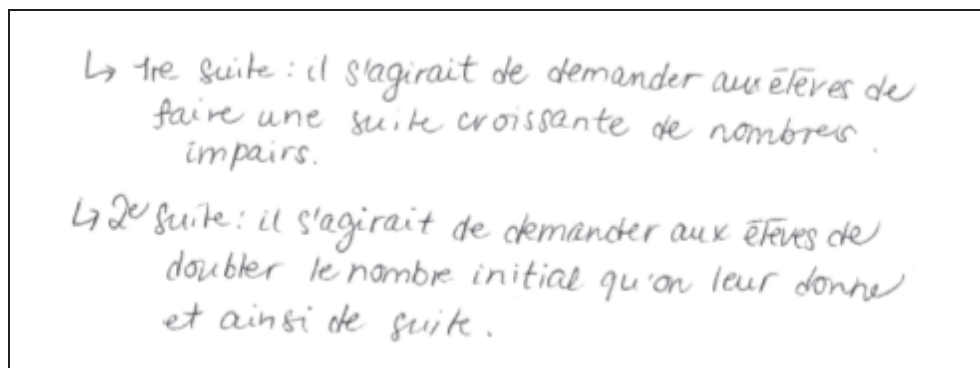 ↳ 1re suite : il s'agirait de demander aux élèves de
faire une suite croissante de nombres
impairs.
↳ 2e suite : il s'agirait de demander aux élèves de
doubler le nombre initial qu'on leur donne
et ainsi de suite.